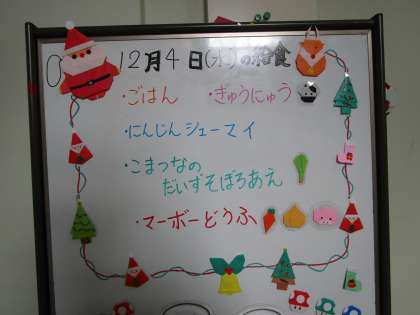 12月4日(水)の給食
・ごはん ・ぎゅうにゅう
・にんじんシューマイ
・こまつなの
だいずそぼろあえ
・マーボーどうふ